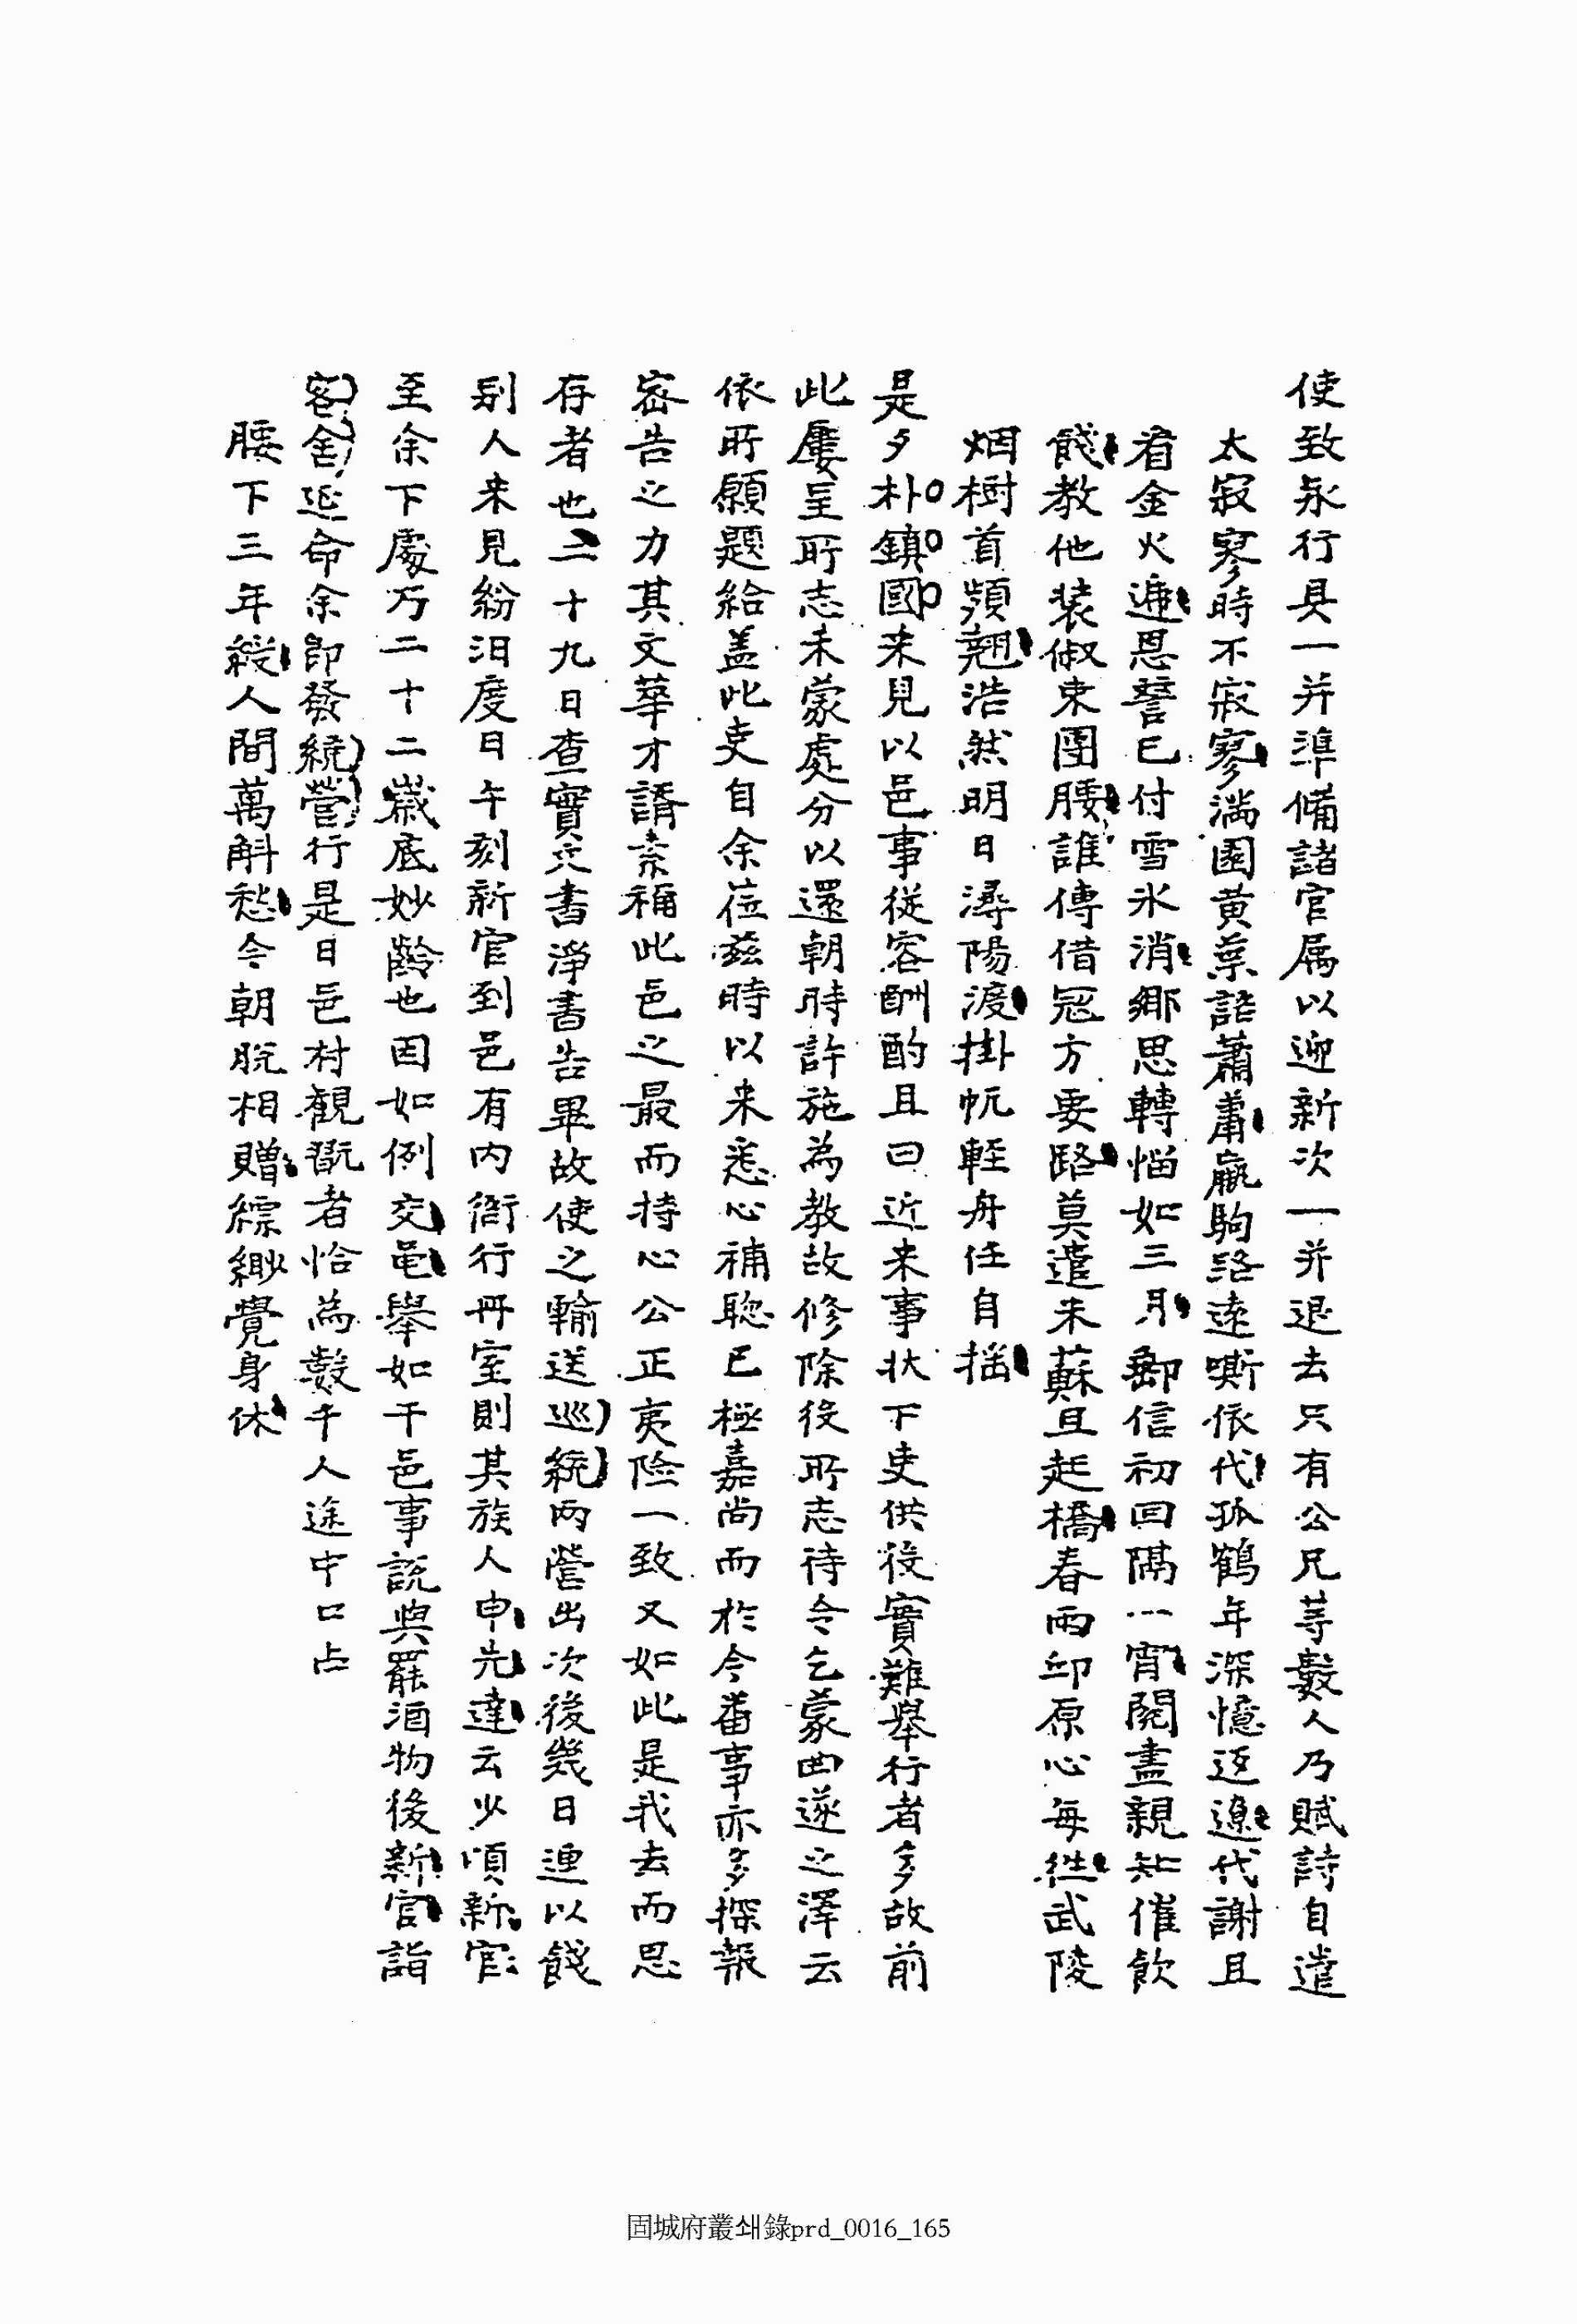 使致永行具一并準備諸官属以迎新次一并退去只有公兄等數人乃賦詩自遣
太寂寥時不寂寥满園黄葉語蕭蕭羸駒路遠嘶依代孤鶴年深憶返遼代謝且
看金火遞恩讐已付雪氷消鄉思轉惱如三月郵信初回隔一宵閱盡親知催飮
餞教他裝俶束團腰誰傳借冦方要路莫遣朱蘇且起橋春雨邱原心每徃武陵
烟樹首頻翹浩然明日潯陽渡掛帆輕舟任自搖
是夕朴鎮國来見以邑事從容酬酌且曰近来事状下吏供役實難舉行者多故前
此屢呈所志未蒙處分以還朝時許施為教故修除役所志待令乞蒙曲遂之澤云
依所願題給盖此吏自余莅兹時以来悉心補聡已極嘉尚而於今番事亦多探報
密告之力其文華才諝素稱此邑之最而持心公正夷險一致又如此是我去而思
存者也二十九日查實文書淨書告畢故使之輸送巡統兩營出次後幾日連以餞
别人来見紛汨度日午刻新官到邑有内衙行冊室則其族人申先達云少頃新官
至余下處乃二十二歲底妙齡也因如例交龜舉如干邑事說與罷酒物後新官詣
客舍延命余即發統營行是日邑村觀翫者恰為數千人途中口占
腰下三年綬人間萬斛愁今朝脫相贈縹緲覺身休
固城府叢쇄錄prd_0016_165